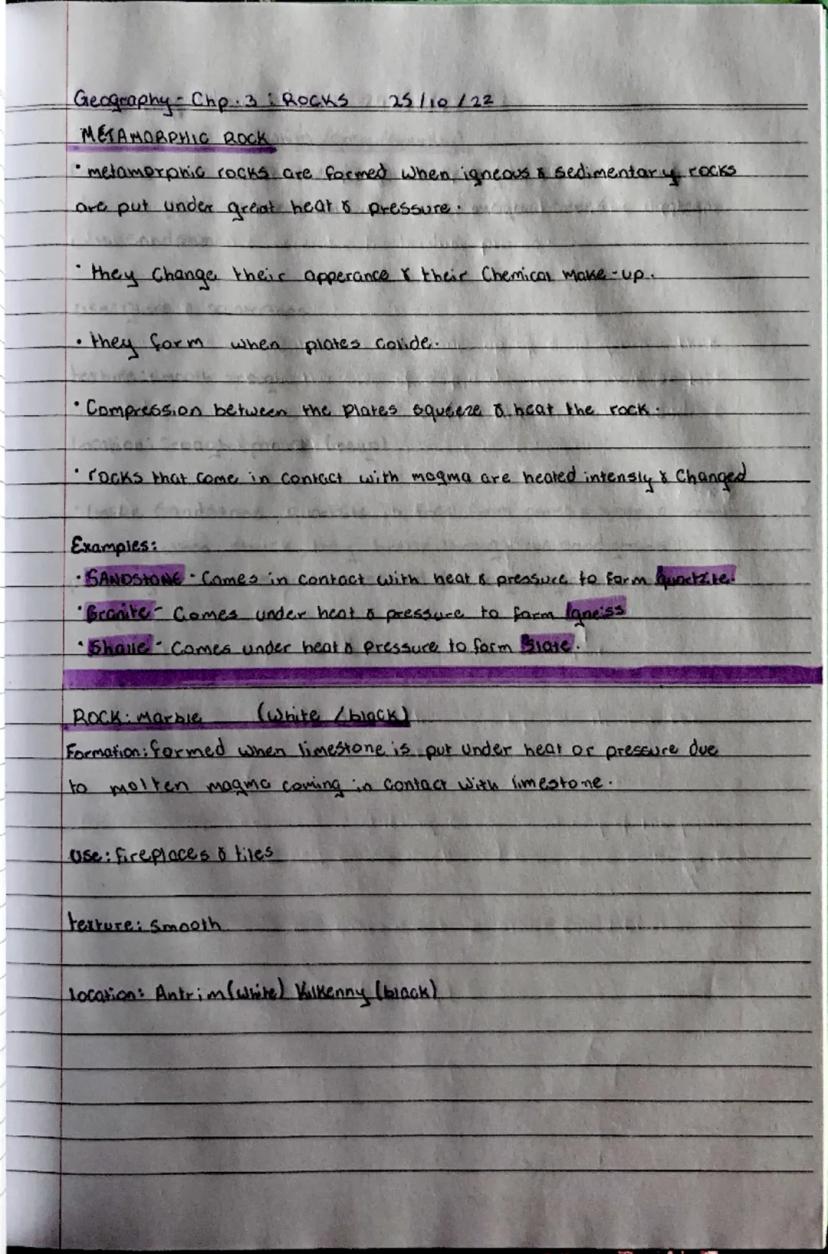 Geography - Chp. 3 : ROCKS 25/10/22
METAMORPHIC ROCK
• metamorphic rocks are formed when igneous & sedimentary rocks
are put under great heat & pressure.
• they change their apperance & their Chemical make-up.
• they form when plates colide.
• Compression between the plates squeeze & heat the rock.
• rocks that come in contact with magma are heated intensly & Changed
Examples:
• SANDSTONE - Comes in contact with heat & pressure to form quartzite.
• Granite - Comes under heat & pressure to form Igneiss
• Shale - Comes under heat & pressure to form Slate.
ROCK: Marble (White / black)
Formation: formed when limestone is put under heat or pressure due
to molten magma coming in contact with limestone.
use: fireplaces & tiles
texture: smooth
location: Antrim (white) Kilkenny (black)